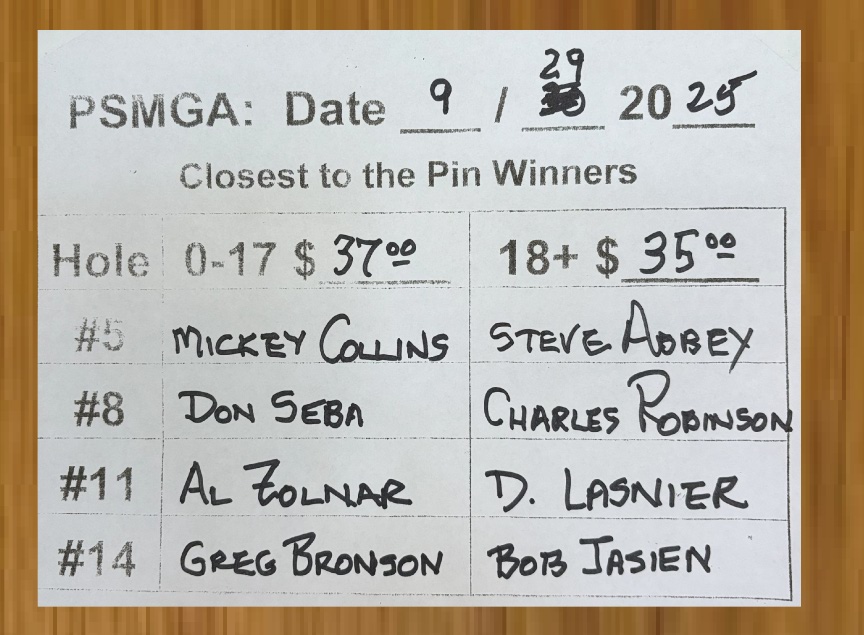 PSMGA: Date 9 / 29 2025
Closest to the Pin Winners
Hole 0-17 $ 37⁰⁰ 18+ $ 35⁰⁰
#5 MICKEY COLLINS STEVE ABBEY
#8 DON SEBA CHARLES ROBINSON
#11 AL ZOLNAR D. LASNIER
#14 GREG BRONSON BOB JASIEN